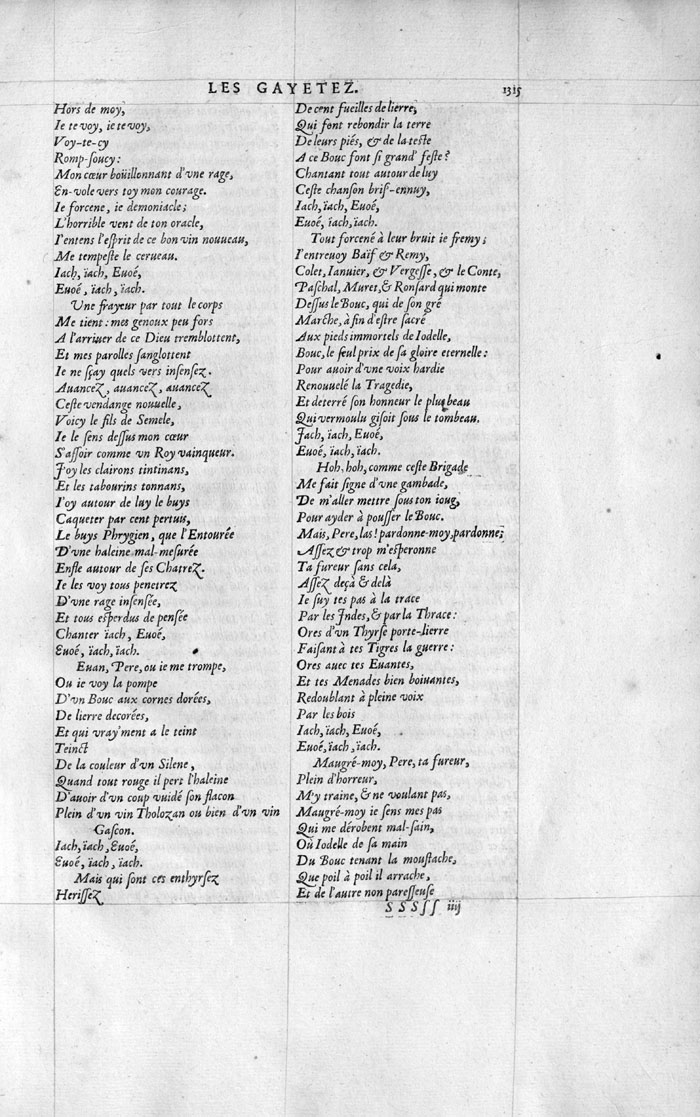 LES GAYETEZ.
1315
Hors de moy,
Ie te voy, ie te voy,
Voy-te-cy
Romp-ſoucy:
Mon cœur boüillonnant d'vne rage,
En-vole vers toy mon courage.
Ie forcene, ie demoniacle;
L'horrible vent de ton oracle,
I'entens l'eſprit de ce bon vin nouueau,
Me tempeſte le cerueau.
Iach, ïach, Euoé,
Euoé, ïach, ïach.
Vne frayeur par tout le corps
Me tient: mes genoux peu fors
A l'arriuer de ce Dieu tremblottent,
Et mes parolles ſanglottent
Ie ne ſçay quels vers inſenſez.
Auancez, auancez, auancez
Ceſte vendange nouuelle,
Voicy le fils de Semele,
Ie le ſens deſſus mon cœur
S'aſſoir comme vn Roy vainqueur.
J'oy les clairons tintinans,
Et les tabourins tonnans,
I'oy autour de luy le buys
Caqueter par cent pertuis,
Le buys Phrygien, que l'Entourée
D'vne haleine mal-meſurée
Enfle autour de ſes Chatrez.
Ie les voy tous penetrez
D'vne rage inſenſée,
Et tous eſperdus de penſée
Chanter ïach, Euoé,
Euoé, ïach, ïach.
Euan, Pere, ou ie me trompe,
Ou ie voy la pompe
D'vn Bouc aux cornes dorées,
De lierre decorées,
Et qui vray'ment a le teint
Teinct
De la couleur d'vn Silene,
Quand tout rouge il pert l'haleine
D'auoir d'vn coup vuidé ſon flacon
Plein d'vn vin Tholozan ou bien d'vn vin
Gaſcon.
Iach, ïach, Euoé,
Euoé, ïach, ïach.
Mais qui ſont ces enthyrſez
Heriſſez
De cent fueilles de lierre,
Qui font rebondir la terre
De leurs piés, & de la teſte
A ce Bouc font ſi grand' feſte?
Chantant tout autour de luy
Ceſte chanſon briſ-ennuy,
Iach, ïach, Euoé,
Euoé, ïach, ïach.
Tout forcené à leur bruit ie fremy;
I'entreuoy Baïf & Remy,
Colet, Ianuier, & Vergeſſe, & le Conte,
Paſchal, Muret, & Ronſard qui monte
Deſſus le Bouc, qui de ſon gré
Marche, à fin d'eſtre ſacré
Aux pieds immortels de Iodelle,
Bouc, le ſeul prix de ſa gloire eternelle:
Pour auoir d'vne voix hardie
Renouuelé la Tragedie,
Et deterré ſon honneur le plus beau
Qui vermoulu giſoit ſous le tombeau.
Jach, ïach, Euoé,
Euoé, ïach, ïach.
Hoh, hoh, comme ceſte Brigade
Me fait ſigne d'vne gambade,
De m'aller mettre ſous ton ioug,
Pour ayder à pouſſer le Bouc.
Mais, Pere, las! pardonne-moy, pardonne;
Aſſez & trop m'eſperonne
Ta fureur ſans cela,
Aſſez deçà & delà
Ie ſuy tes pas à la trace
Par les Jndes, & par la Thrace:
Ores d'vn Thyrſe porte-lierre
Faiſant à tes Tigres la guerre:
Ores auec tes Euantes,
Et tes Menades bien boiuantes,
Redoublant à pleine voix
Par les bois
Iach, ïach, Euoé,
Euoé, ïach, ïach.
Maugré-moy, Pere, ta fureur,
Plein d'horreur,
M'y traine, & ne voulant pas,
Maugré-moy ie ſens mes pas
Qui me dérobent mal-ſain,
Où Iodelle de ſa main
Du Bouc tenant la mouſtache,
Que poil à poil il arrache,
Et de l'autre non pareſſeuſe
S S S ſ ſ iiij